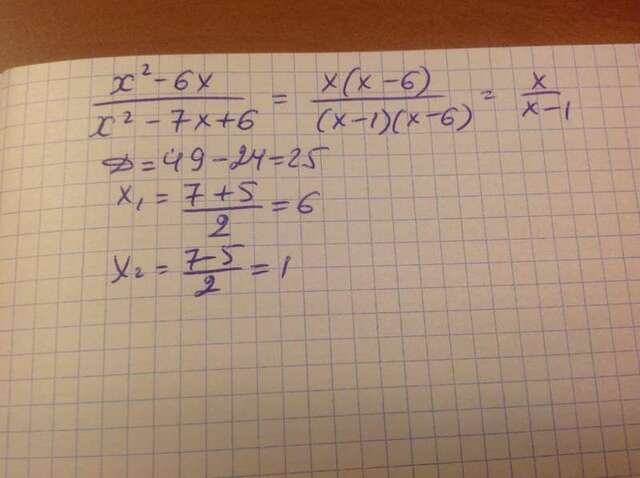 x² - 6x / x² - 7x + 6 = x(x - 6) / (x - 1)(x - 6) = x / x - 1
D = 49 - 24 = 25
x₁ = 7 + 5 / 2 = 6
x₂ = 7 - 5 / 2 = 1